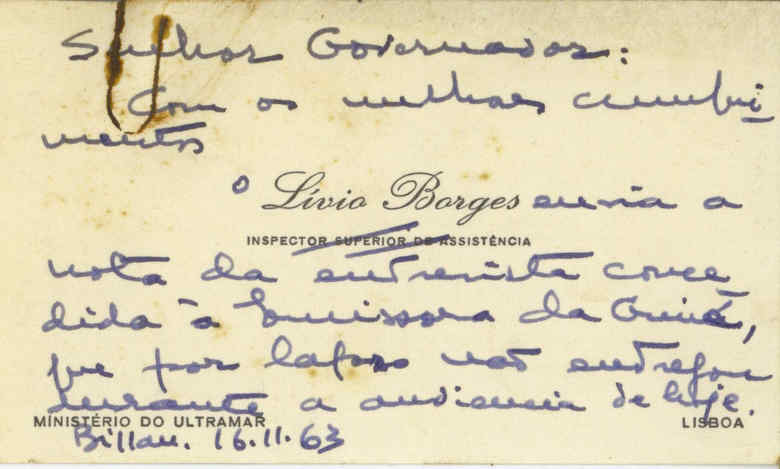 Senhor Governador:
Com os melhores cumpri-
mentos
o Lívio Borges envia a
INSPECTOR SUPERIOR DE ASSISTÊNCIA
nota da entrevista conce-
dida à Emissora da Guiné,
que por lapso não entregou
durante a audiencia de hoje.
MINISTÉRIO DO ULTRAMAR LISBOA
Bissau. 16.11.63